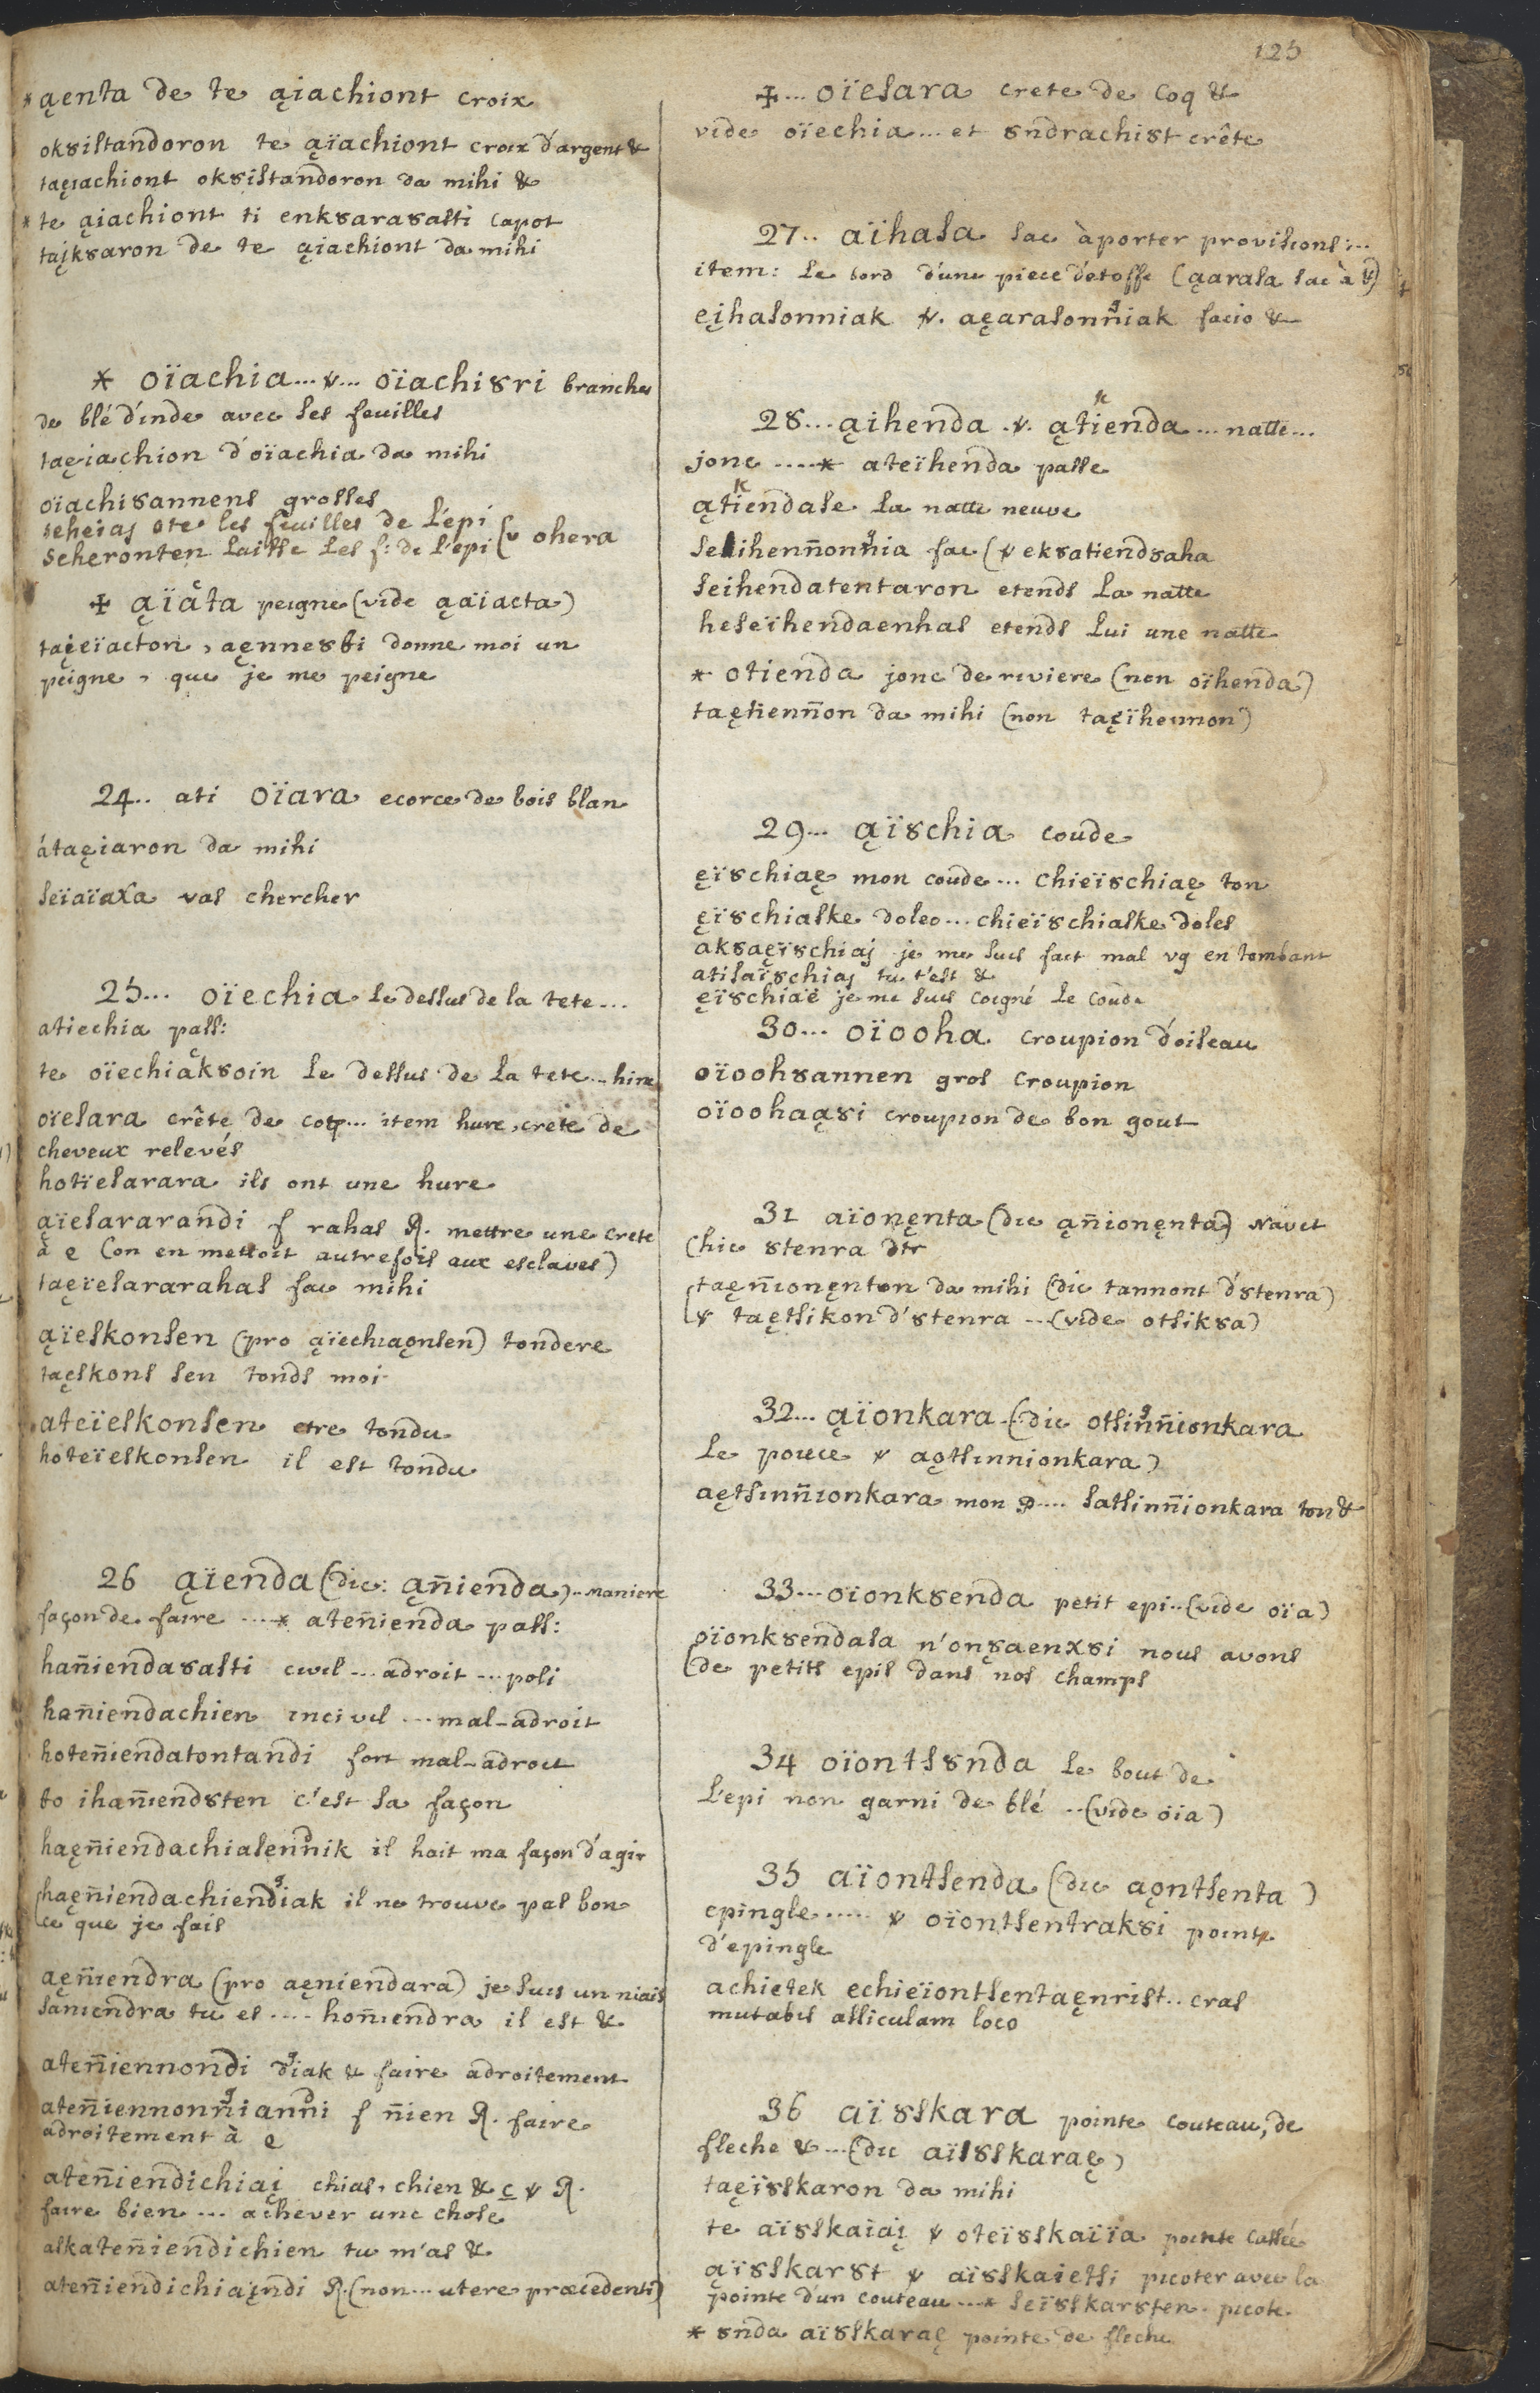 125
* ąenta de te ąiachiont croix
okȣistandoron te ąïachiont croix d'argent &
taęiachiont okȣistandoron da mihi &
* te ąiachiont ti enkȣaraȣasti capot
taįkȣaron de te ąiachiont da mihi
* oïachia... v... oïachiȣri branches
de blé d'inde avec ses feuilles
taęiachion d'oïachia da mihi
oïachiȣannens grosses
seheiaj ote les feuilles de l'epi
seheronten laisse les f: de l'epi (v ohera
✠ ąïacta peigne (vide ąaïacta)
taįeïacton, aęnnesti donne moi un
peigne, que je me peigne
24.. ati oïara ecorce de bois blan
átaęiaron da mihi
seïaïaxa vas chercher
25... oïechia le dessus de la tete...
atiechia pass:
te oïechiacksoin le dessus de la tete... hinc
oïesara crête de coq... item hure, crete de
cheveux relevés
hotïesarara ils ont une hure
ąïesararandi f rahas R. mettre une crete
à ę (on en mettoit autrefois aux esclaves)
taęïesararahas fac mihi
ąïeskonsen (pro ąïechiaǫnsen) tondere
taęskons sen tonds moi
ateïeskonsen etre tondu
hoteïeskonsen il est tondu
26 ąïenda (dic: ąñienda)... maniere
façon de faire ....* ateñienda pass:
hañiendaȣasti civil... adroit... poli
hañiendachien incivil... mal-adroit
hoteñiendatontandi fort mal-adroit
to ihañiendȣten c'est sa façon
haęñiendachiasennik il hait ma façon d'agir
(haęñiendachiendiak il ne trouve pas bon
ce que je fais
aęñiendra (pro aęniendara) je suis un niais
sañiendra tu es .... hoñiendra il est &
ateñiennondi diak & faire adroitement
ateñiennonñianni f ñien R. faire
adroitement à ę
ateñiendichiaį chias, chien & c v R.
faire bien... achever une chose
askateñiendichien tu m'as &
ateñiendichiaįndi R. (non... utere præcedenti)
✠... oïesara crete de Coq &
vide oïechia... et ȣndrachiȣt crête
27.. aïhasa sac à porter provisions:...
item: le bord d'une piece d'etoffe (ąarasa sac à v)
eįhasonniak v. aęarasonñiak facio &
28... ąihenda v. ątienda... natte...
jonc ....* ateïhenda passe
ątiendase la natte neuve
seihenñonñia fac (v ekȣatiendȣaha
seihendatentaron etends la natte
heseïhendaenhas etends lui une natte
* otienda jonc de riviere (non oïhenda)
taętienñon da mihi (non taęïhennon)
29... ąïȣchia coude
ęïȣchiaę mon coude... chieïȣchiaę ton
ęïȣchiaske doleo... chieïȣchiaske doles
akȣaęïȣchiaj je me suis fait mal vg en tombant
atisaïȣchiaj tu t'est &
ęïȣchiaë je me suis coigné le coude
30... oïooha croupion d'oiseau
oïoohȣannen gros croupion
oïoohaąȣi croupion de bon gout
31 aïonęnta (dic ąñionęnta) navet
(hic ȣtenra dtr
(taęñionęnton da mihi (dic tannont d'ȣtenra)
v taętsikon d'ȣtenra... (vide otsikȣa)
32... ąïonkara (dic otsinñionkara
le pouce v aǫtsinnionkara)
aętsinñionkara mon p.... satsinñionkara ton &
33... oïonkȣenda petit epi.. (vide oïa)
oïonkȣendasa n'onȣaenxȣi nous avons
(de petits epis dans nos champs
34 oïontsȣnda le bout de
l'epi non garni de blé... (vide oïa)
35 aïontsenda (dic aǫntsenta)
epingle..... v oïontsentrakȣi pointe
d'epingle
achietek echieïontsentaęnrist.. cras
mutabis assiculam loco
36 aïȣskara pointe couteau, de
fleche &... (dic aïȣskaraę)
taęïȣskaron da mihi
te aïȣskaiaį v oteïȣskaïïa pointe cassée
ąïȣskarȣt v aïȣskaietsi picoter avec la
pointe d'un couteau...* seïȣskarȣten. picote
* ȣnda aïȣskaraę pointe de fleche